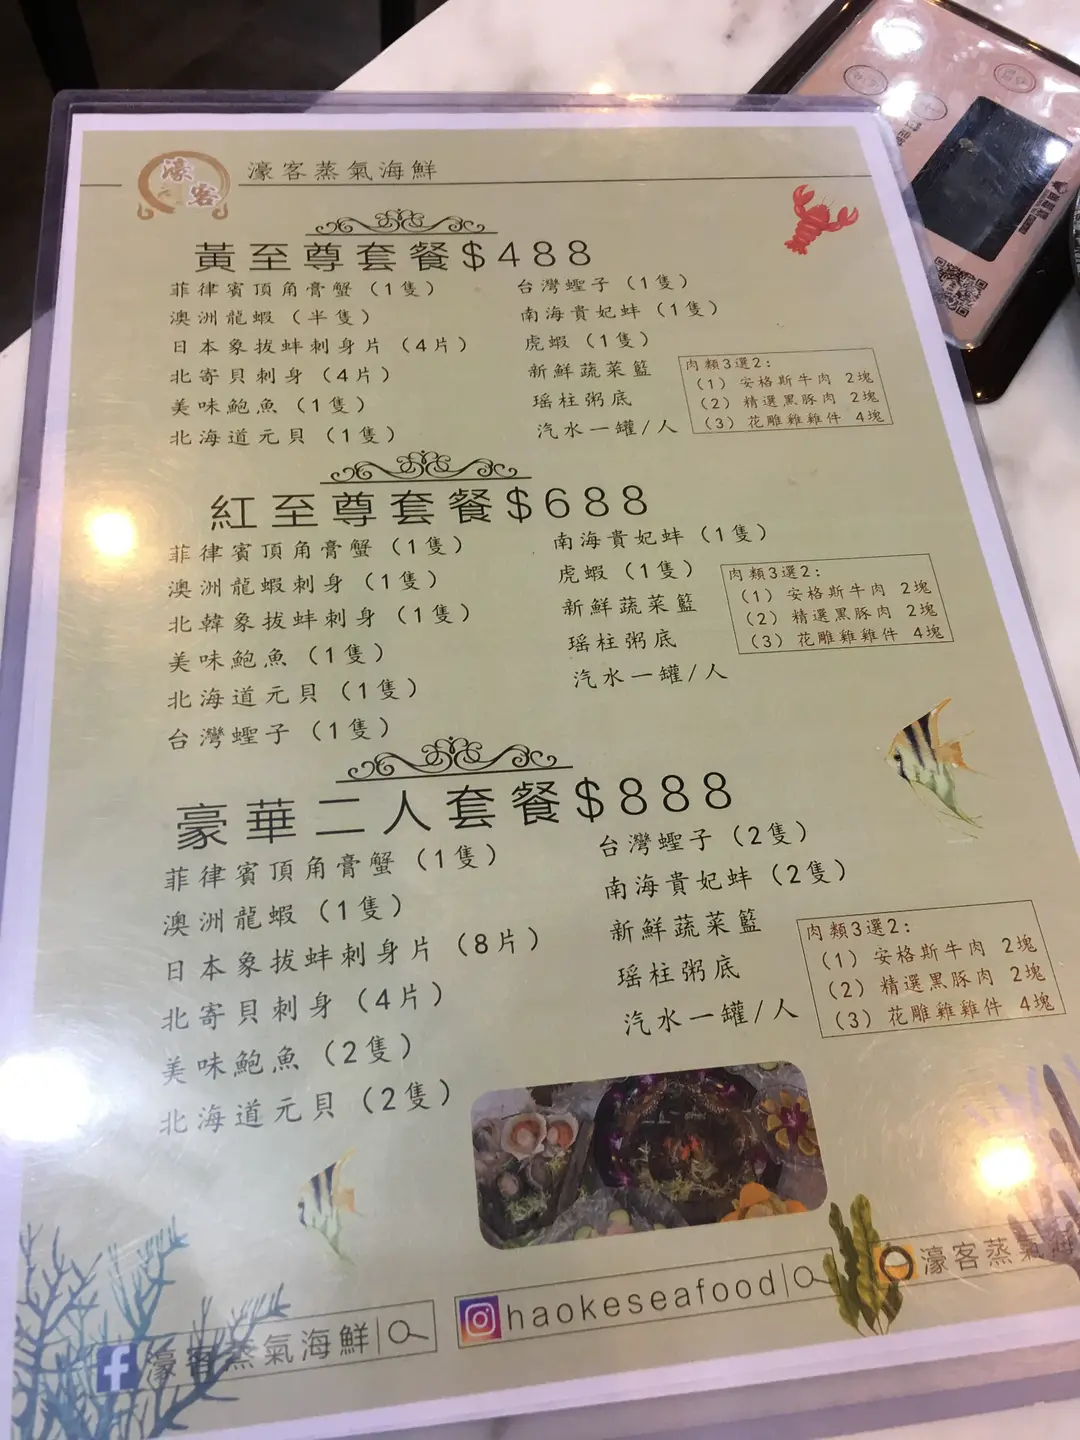 濠
客
濠客蒸氣海鮮
黃至尊套餐$488
菲律賓頂角膏蟹（1隻）
澳洲龍蝦（半隻）
日本象拔蚌刺身片（4片）
北寄貝刺身（4片）
美味鮑魚（1隻）
北海道元貝（1隻）
台灣蟶子（1隻）
南海貴妃蚌（1隻）
虎蝦（1隻）
新鮮蔬菜籃
瑶柱粥底
汽水一罐/人
肉類3選2:
（1）安格斯牛肉 2塊
（2）精選黑豚肉 2塊
（3）花雕雞雞件 4塊
紅至尊套餐$688
菲律賓頂角膏蟹（1隻）
澳洲龍蝦刺身（1隻）
北韓象拔蚌刺身（1隻）
美味鮑魚（1隻）
北海道元貝（1隻）
台灣蟶子（1隻）
南海貴妃蚌（1隻）
虎蝦（1隻）
新鮮蔬菜籃
瑶柱粥底
汽水一罐/人
肉類3選2:
（1）安格斯牛肉 2塊
（2）精選黑豚肉 2塊
（3）花雕雞雞件 4塊
豪華二人套餐$888
菲律賓頂角膏蟹（1隻）
澳洲龍蝦（1隻）
日本象拔蚌刺身片（8片）
北寄貝刺身（4片）
美味鮑魚（2隻）
北海道元貝（2隻）
台灣蟶子（2隻）
南海貴妃蚌（2隻）
新鮮蔬菜籃
瑶柱粥底
汽水一罐/人
肉類3選2:
（1）安格斯牛肉 2塊
（2）精選黑豚肉 2塊
（3）花雕雞雞件 4塊
濠客蒸氣海鮮
haokeseafood
濠客蒸氣海